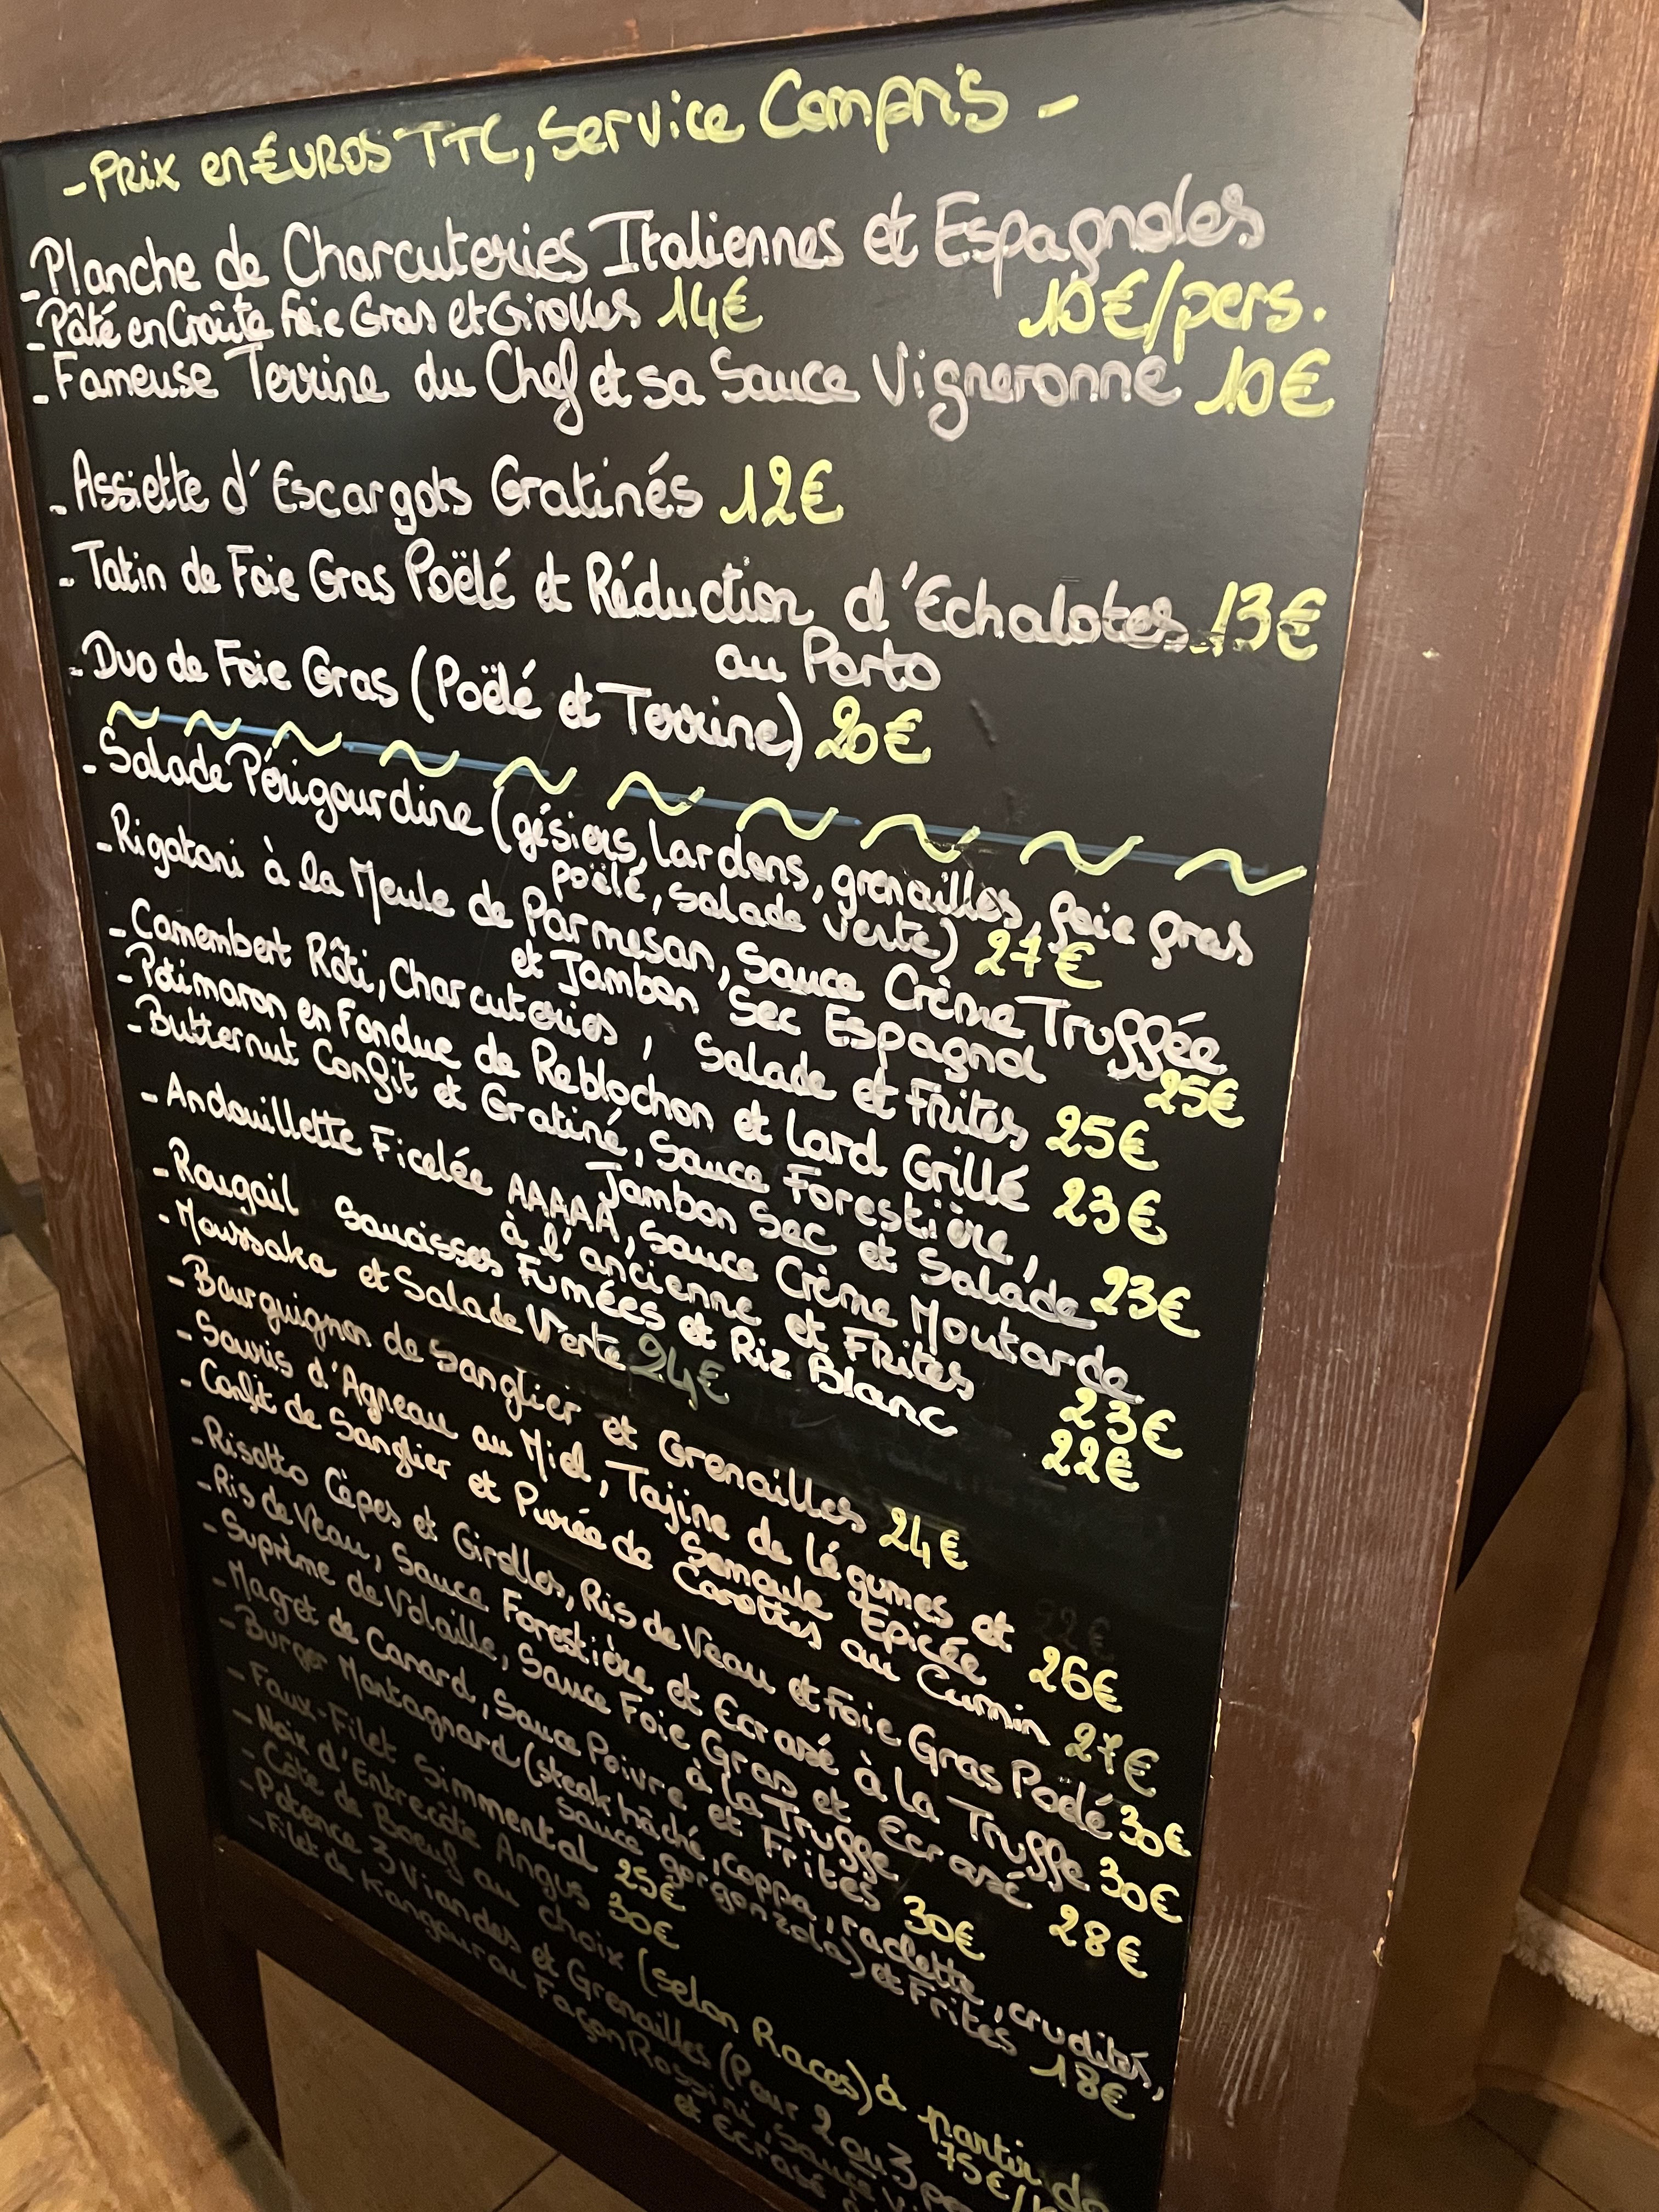 - Prix en €uros TTC, Service Compris -
- Planche de Charcuteries Italiennes et Espagnoles
10€/pers.
- Pâté en Croûte Foie Gras et Girolles 14€
- Fameuse Terrine du Chef et sa Sauce Vigneronne 10€
- Assiette d'Escargots Gratinés 12€
- Tatin de Foie Gras Poëlé et Réduction d'Echalotes 13€
au Porto
- Duo de Foie Gras (Poëlé et Terrine) 20€
~ ~ ~ ~ ~ ~ ~ ~ ~ ~
- Salade Périgourdine (gésiers, lardons, grenailles, foie gras
poëlé, salade verte) 27€
- Rigatoni à la Meule de Parmesan, Sauce Crème Truffée
et Jambon Sec Espagnol 25€
- Camembert Rôti, Charcuteries, Salade et Frites 25€
- Potimaron en Fondue de Reblochon et Lard Grillé 23€
- Butternut Confit et Gratiné, Sauce Forestière,
Jambon Sec et Salade 23€
- Andouillette Ficelée AAAAA, Sauce Crème Moutarde
à l'ancienne et Frites 23€
- Rougail Saucisses Fumées et Riz Blanc 22€
- Moussaka et Salade Verte 24€
- Bourguignon de Sanglier et Grenailles 24€
- Souris d'Agneau au Miel, Tajine de Légumes et
Semoule Epicée 26€
- Confit de Sanglier et Purée de Carottes au Cumin 27€
- Risotto Cèpes et Girolles, Ris de Veau et Foie Gras Poëlé 30€
- Ris de Veau, Sauce Forestière et Ecrasé à la Truffe 30€
- Suprême de Volaille, Sauce Foie Gras et Ecrasé
à la Truffe 28€
- Magret de Canard, Sauce Poivre et Frites 30€
- Burger Montagnard (steak hâché, coppa, raclette, crudités,
sauce gorgonzola) et Frites 18€
- Faux-Filet Simmental 25€
- Noix d'Entrecôte Angus 30€
- Côte de Boeuf au choix (selon Races) à partir de
75€/
- Potence 3 Viandes et Grenailles (Pour 2 ou 3 pe
- Filet de Kangourou Façon Rossini, Sauce
et Ecrasé